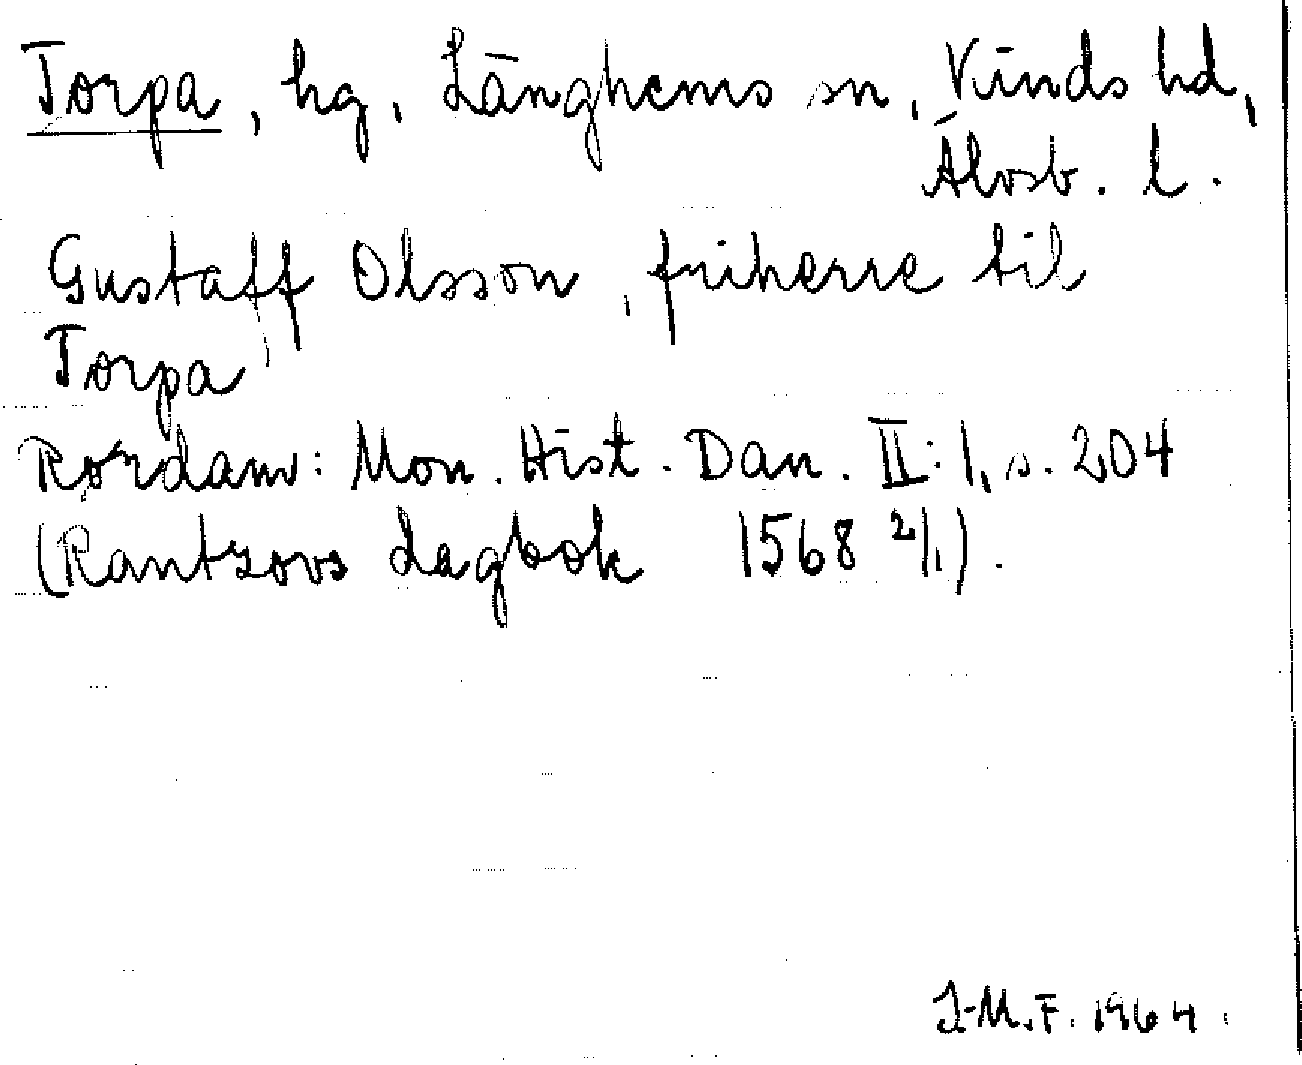 Torpa, hg, Länghems sn, Kinds hd,
Älvsb. l.
Gustaff Olsson, friherre til
Torpa
Rørdam: Mon. Hist. Dan. II:1, s. 204
(Rantzovs dagbok 1568 2/1).
I-M.F. 1964.